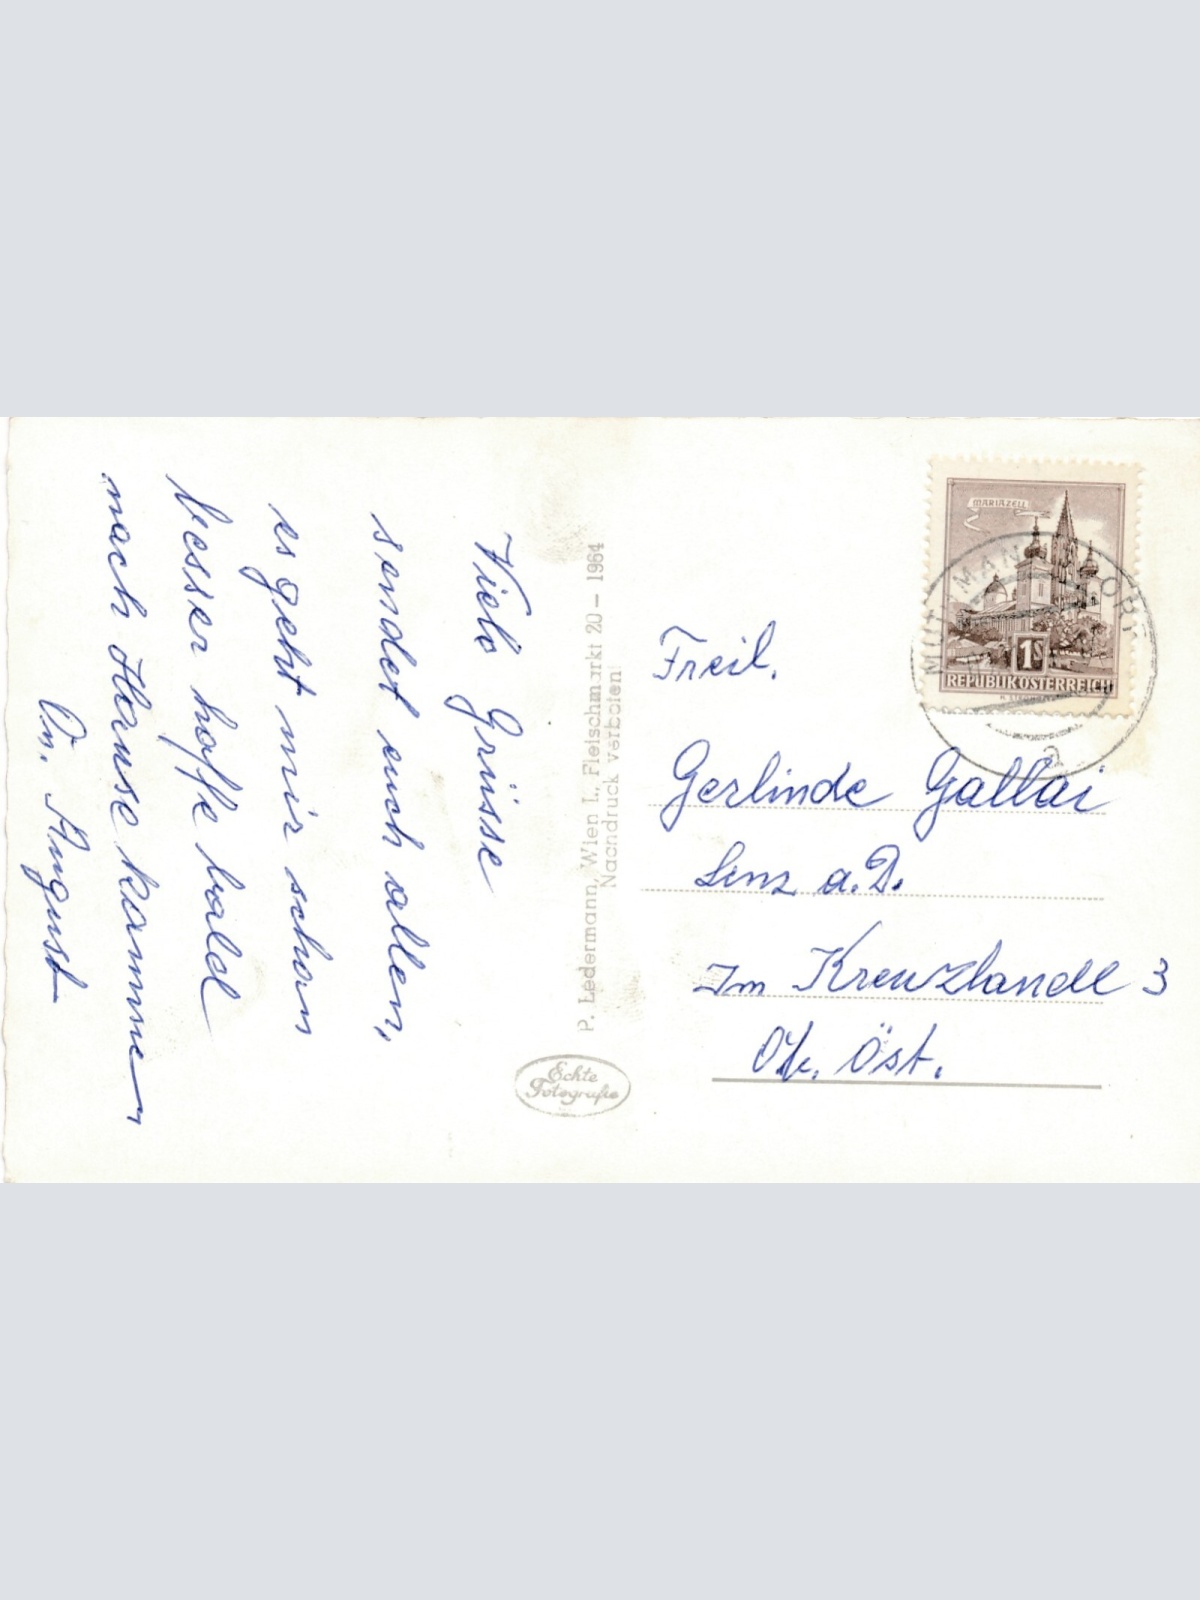 Viele Grüsse
sendet euch allen,
es geht mir schon
besser hoffe bald
nach Hause kommen
On. August
P. Ledermann, Wien I., Fleischmarkt 20 – 1964
Nachdruck verboten!
Echte
Fotografie
MARIAZELL
1S
REPUBLIK ÖSTERREICH
Freil.
Gerlinde Gallai
Linz a.D.
Im Kreuzlandl 3
Ob. Öst.